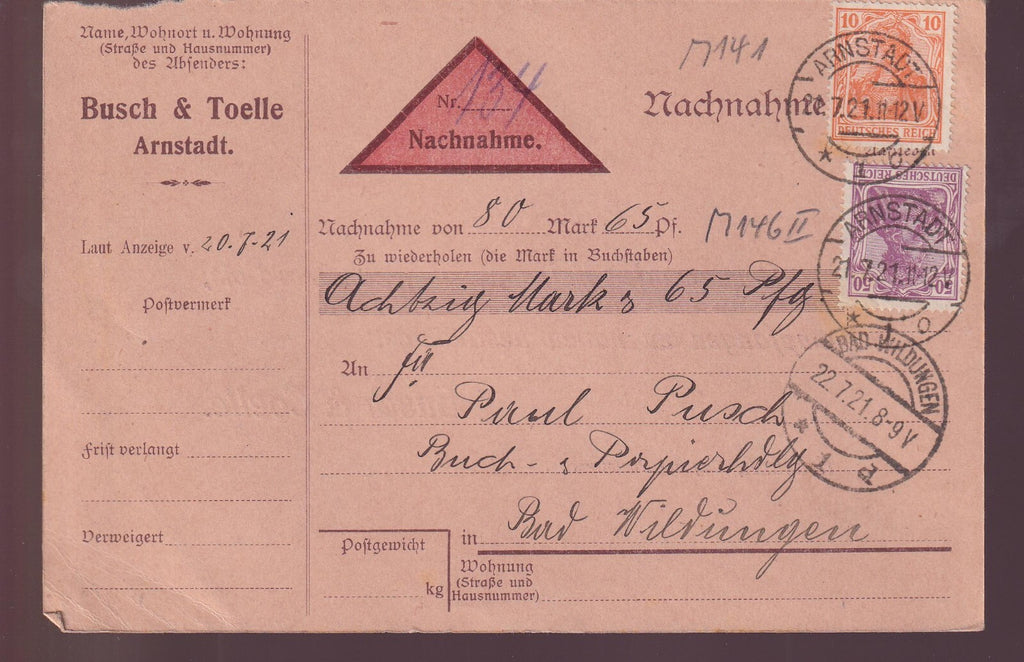 Name, Wohnort u. Wohnung
(Straße und Hausnummer)
des Absenders:
Busch & Toelle
Arnstadt.
Laut Anzeige v. 20.7.21
Postvermerk
Frist verlangt
Verweigert
Nr. 134
Nachnahme.
M141
Nachnahme
10 10
DEUTSCHES REICH
ARNSTADT
21.7.21.11-12V
* 1 o
Nachnahme von 80 Mark 65 Pf.
M146 II
Zu wiederholen (die Mark in Buchstaben)
Achtzig Mark & 65 Pfg
DEUTSCHES REICH
50 50
ARNSTADT
21.7.21.11-12V
* 1 o
An
Paul Pusch
Buch- & Papierhdlg
BAD WILDUNGEN
22.7.21.8-9V
in Bad Wildungen
Postgewicht
kg
Wohnung
(Straße und
Hausnummer)